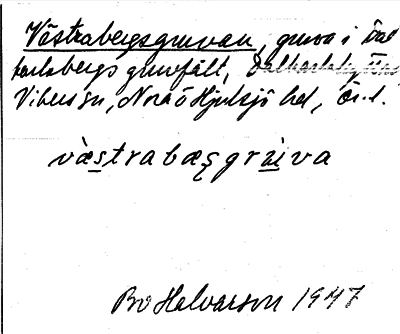 Västrabergsgruvan, gruva i Dal
karlsbergs gruvfält,
Vikers sn, Nora o Hjulsjö bel, Ör. l.
västrabæsgrùva
Bo Halvarson 1947